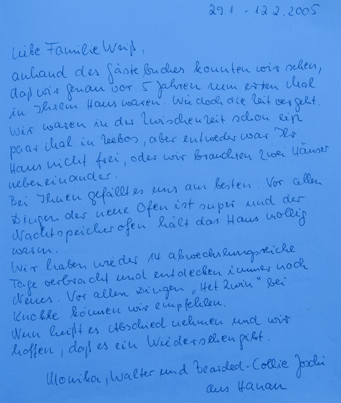 29.1 - 12.2.2005
Liebe Familie Weiß,
anhand des Gästebuches konnten wir sehen,
daß wir genau vor 5 Jahren zum ersten Mal
in Ihrem Haus waren. Wie doch die Zeit vergeht.
Wir waren in der Zwischenzeit schon ein
paar Mal in Zeebos, aber entweder war Ihr
Haus nicht frei, oder wir brauchten zwei Häuser
nebeneinander.
Bei Ihnen gefällt es uns am besten. Vor allen
Dingen der neue Ofen ist super und der
Nachtspeicherofen hält das Haus mollig
warm.
Wir haben wieder 14 abwechslungsreiche
Tage verbracht und entdecken immer noch
Neues. Vor allen Dingen "Het Zwin" bei
Knokke können wir empfehlen.
Nun heißt es Abschied nehmen und wir
hoffen, daß es ein Wiedersehen gibt.
Monika, Walter und Bearded-Collie Joschi
aus Hanau